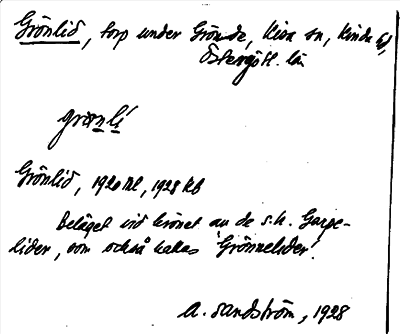 Grönlid, torp under Grönede, Kisa sn, Kinda hd,
Östergötl. län
grönlí
Grönlid, 1920 Ml, 1928 Kb
Beläget vid krönet av de s.k. Garpe-
lider, som också kallas 'Grönnelider'.
A. Sandström, 1928